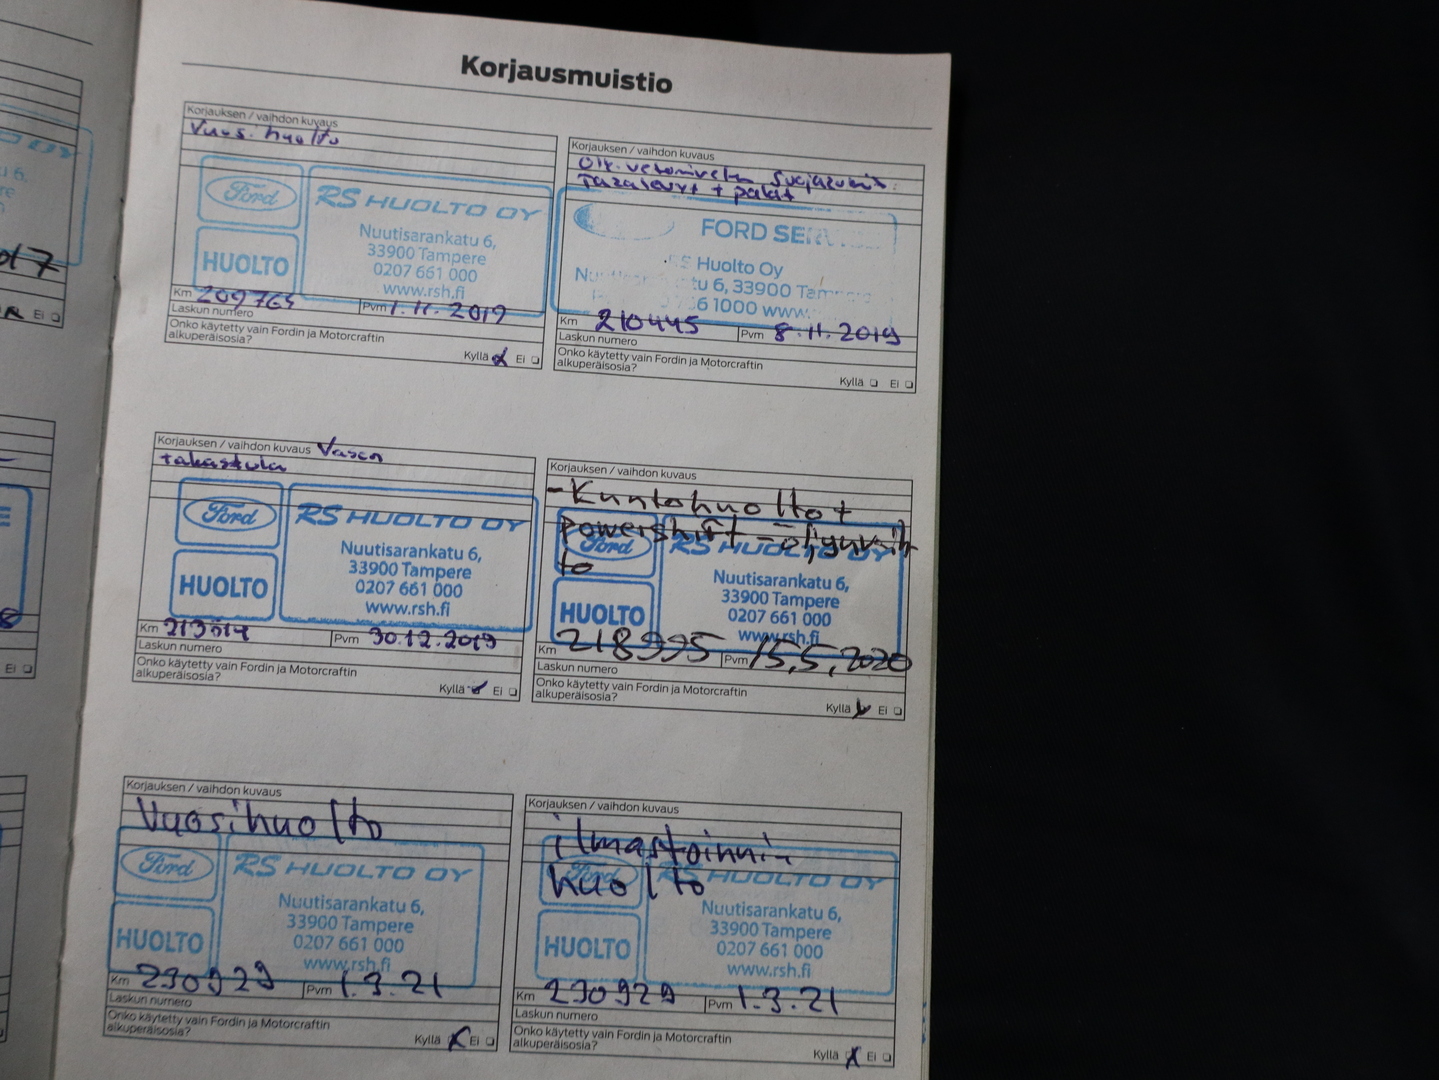 Korjausmuistio
Korjauksen / vaihdon kuvaus
Vuosihuolto
Ford
HUOLTO
RS HUOLTO OY
Nuutisarankatu 6,
33900 Tampere
0207 661 000
www.rsh.fi
Km 209765 Pvm 1.11.2019
Laskun numero
Onko käytetty vain Fordin ja Motorcraftin
alkuperäisosia?
Kyllä Ei
Korjauksen / vaihdon kuvaus
Oik. vetonivelen suojakumi
Takalevyt + palat
FORD SER
Huolto Oy
tu 6, 33900 Tam
61000 www.
Km 210445 Pvm 8.11.2019
Laskun numero
Onko käytetty vain Fordin ja Motorcraftin
alkuperäisosia?
Kyllä Ei
Korjauksen / vaihdon kuvaus Vasen
takastula
Ford
HUOLTO
RS HUOLTO OY
Nuutisarankatu 6,
33900 Tampere
0207 661 000
www.rsh.fi
Km Pvm 30.12.2019
Laskun numero
Onko käytetty vain Fordin ja Motorcraftin
alkuperäisosia?
Kyllä Ei
Korjauksen / vaihdon kuvaus
- Kuntohuolto +
powershift - öljynvaih
to
Ford
HUOLTO
RS HUOLTO OY
Nuutisarankatu 6,
33900 Tampere
0207 661 000
www.rsh.fi
Km 218995 Pvm 15,5,2020
Laskun numero
Onko käytetty vain Fordin ja Motorcraftin
alkuperäisosia?
Kyllä Ei
Korjauksen / vaihdon kuvaus
Vuosihuolto
Ford
HUOLTO
RS HUOLTO OY
Nuutisarankatu 6,
33900 Tampere
0207 661 000
www.rsh.fi
Km 230929 Pvm 1.3.21
Laskun numero
Onko käytetty vain Fordin ja Motorcraftin
alkuperäisosia?
Kyllä Ei
Korjauksen / vaihdon kuvaus
ilmastoinnin
huolto
Ford
HUOLTO
RS HUOLTO OY
Nuutisarankatu 6,
33900 Tampere
0207 661 000
www.rsh.fi
Km 230929 Pvm 1.3.21
Laskun numero
Onko käytetty vain Fordin ja Motorcraftin
alkuperäisosia?
Kyllä Ei